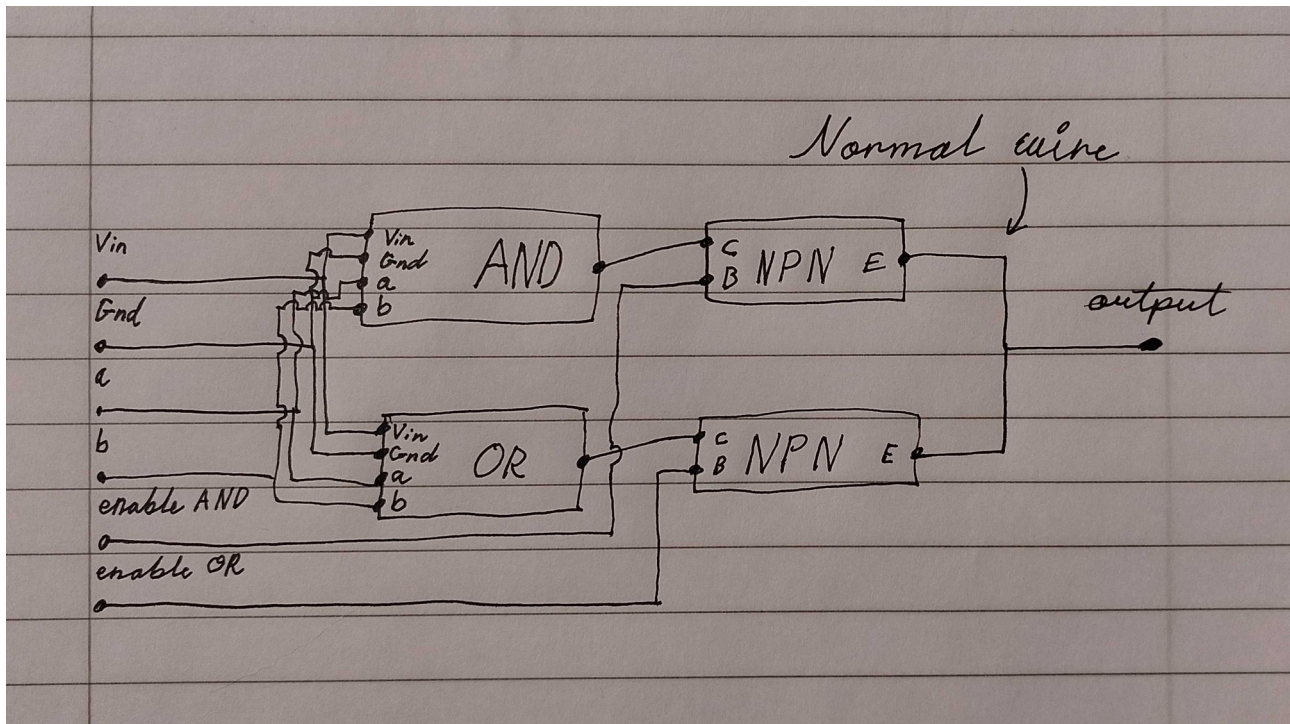 Normal wire
Vin
Gnd
a
b
enable AND
enable OR
Vin
Gnd
a
b
AND
C
B
NPN
E
output
Vin
Gnd
a
b
OR
C
B
NPN
E